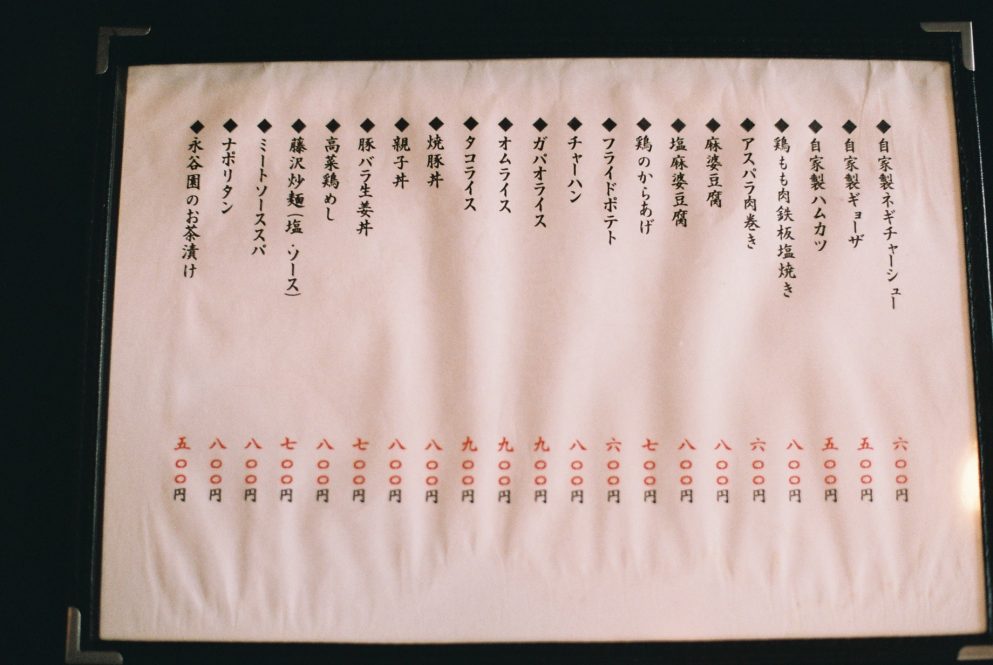 ◆自家製ネギチャーシュー 六〇〇円
◆自家製ギョーザ 五〇〇円
◆自家製ハムカツ 五〇〇円
◆鶏もも肉鉄板塩焼き 八〇〇円
◆アスパラ肉巻き 六〇〇円
◆麻婆豆腐 八〇〇円
◆塩麻婆豆腐 八〇〇円
◆鶏のからあげ 七〇〇円
◆フライドポテト 六〇〇円
◆チャーハン 八〇〇円
◆ガバオライス 九〇〇円
◆オムライス 九〇〇円
◆タコライス 九〇〇円
◆焼豚丼 八〇〇円
◆親子丼 八〇〇円
◆豚バラ生姜丼 七〇〇円
◆高菜鶏めし 八〇〇円
◆藤沢炒麺(塩・ソース) 七〇〇円
◆ミートソーススパ 八〇〇円
◆ナポリタン 八〇〇円
◆永谷園のお茶漬け 五〇〇円